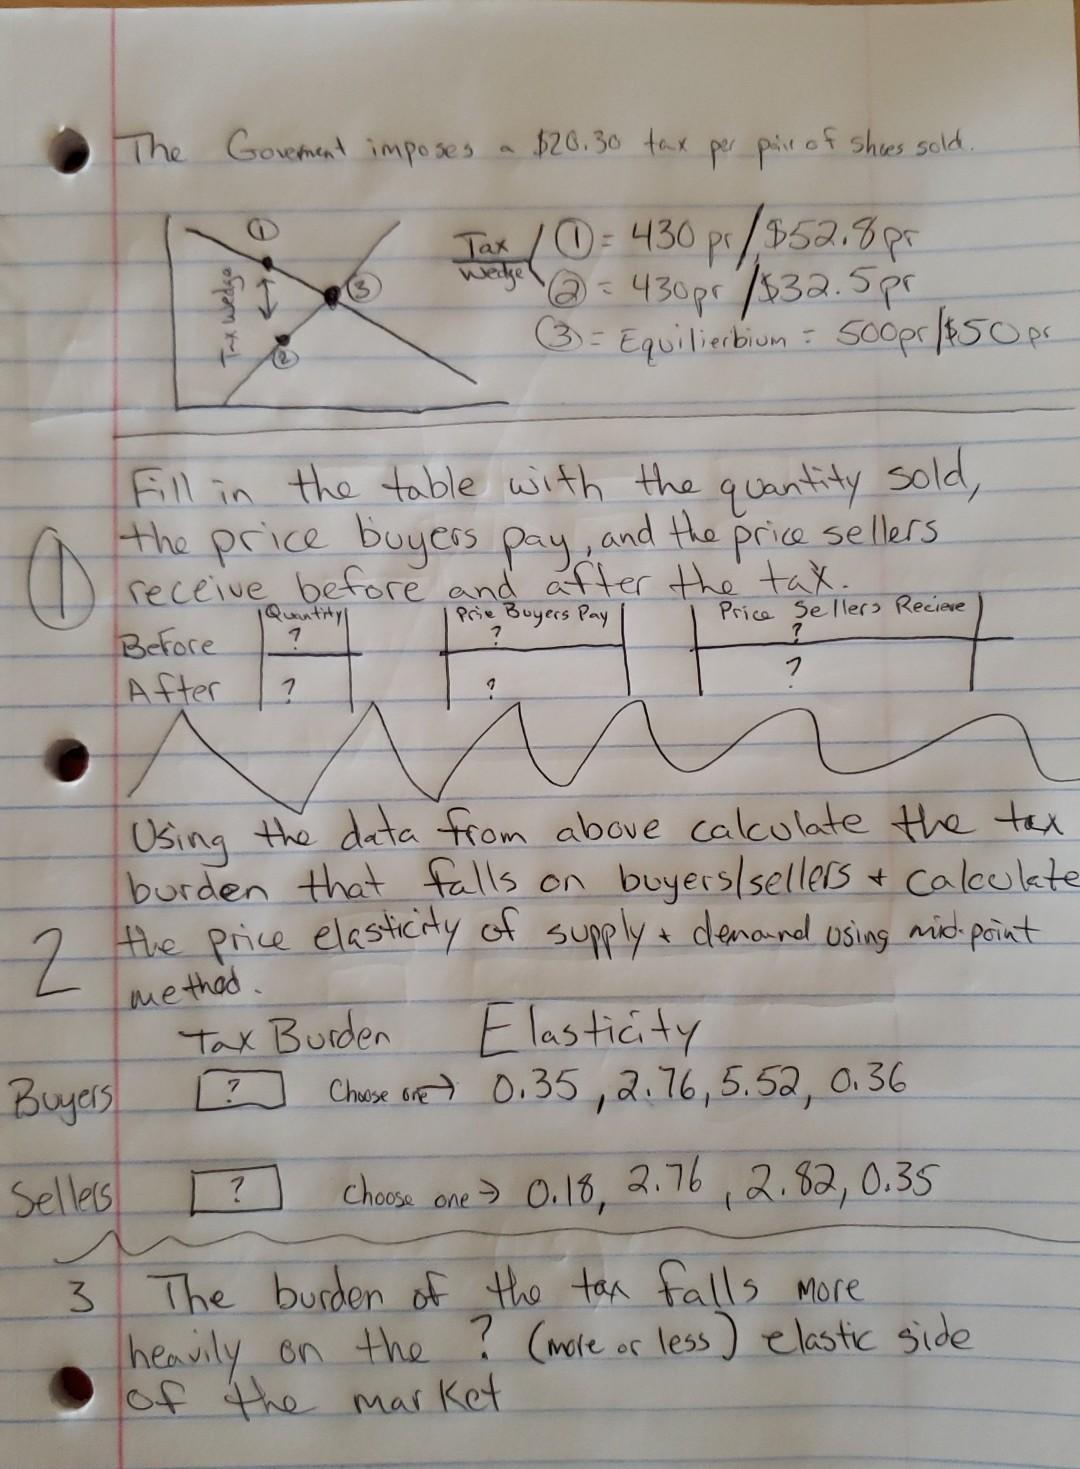 The Goverment imposes a $20.30 tax per pair of shoes sold.
①
Tax Wedge
③
②
Tax Wedge ① = 430 pr/$52.8 pr
② = 430pr /$32.5pr
③ = Equilierbium = 500pr/$50 pr
① Fill in the table with the quantity sold,
the price buyers pay, and the price sellers
receive before and after the tax.
Quantity Prie Buyers Pay Price Sellers Recieve
Before ? ? ?
After ? ? ?
Using the data from above calculate the tax
burden that falls on buyers/sellers + calculate
2 the price elasticity of supply + demand using mid-point
method.
Tax Burden Elasticity
Buyers ? Choose one → 0.35, 2.76, 5.52, 0.36
Sellers ? Choose one → 0.18, 2.76, 2.82, 0.35
3 The burden of the tax falls more
heavily on the ? (more or less) elastic side
of the market